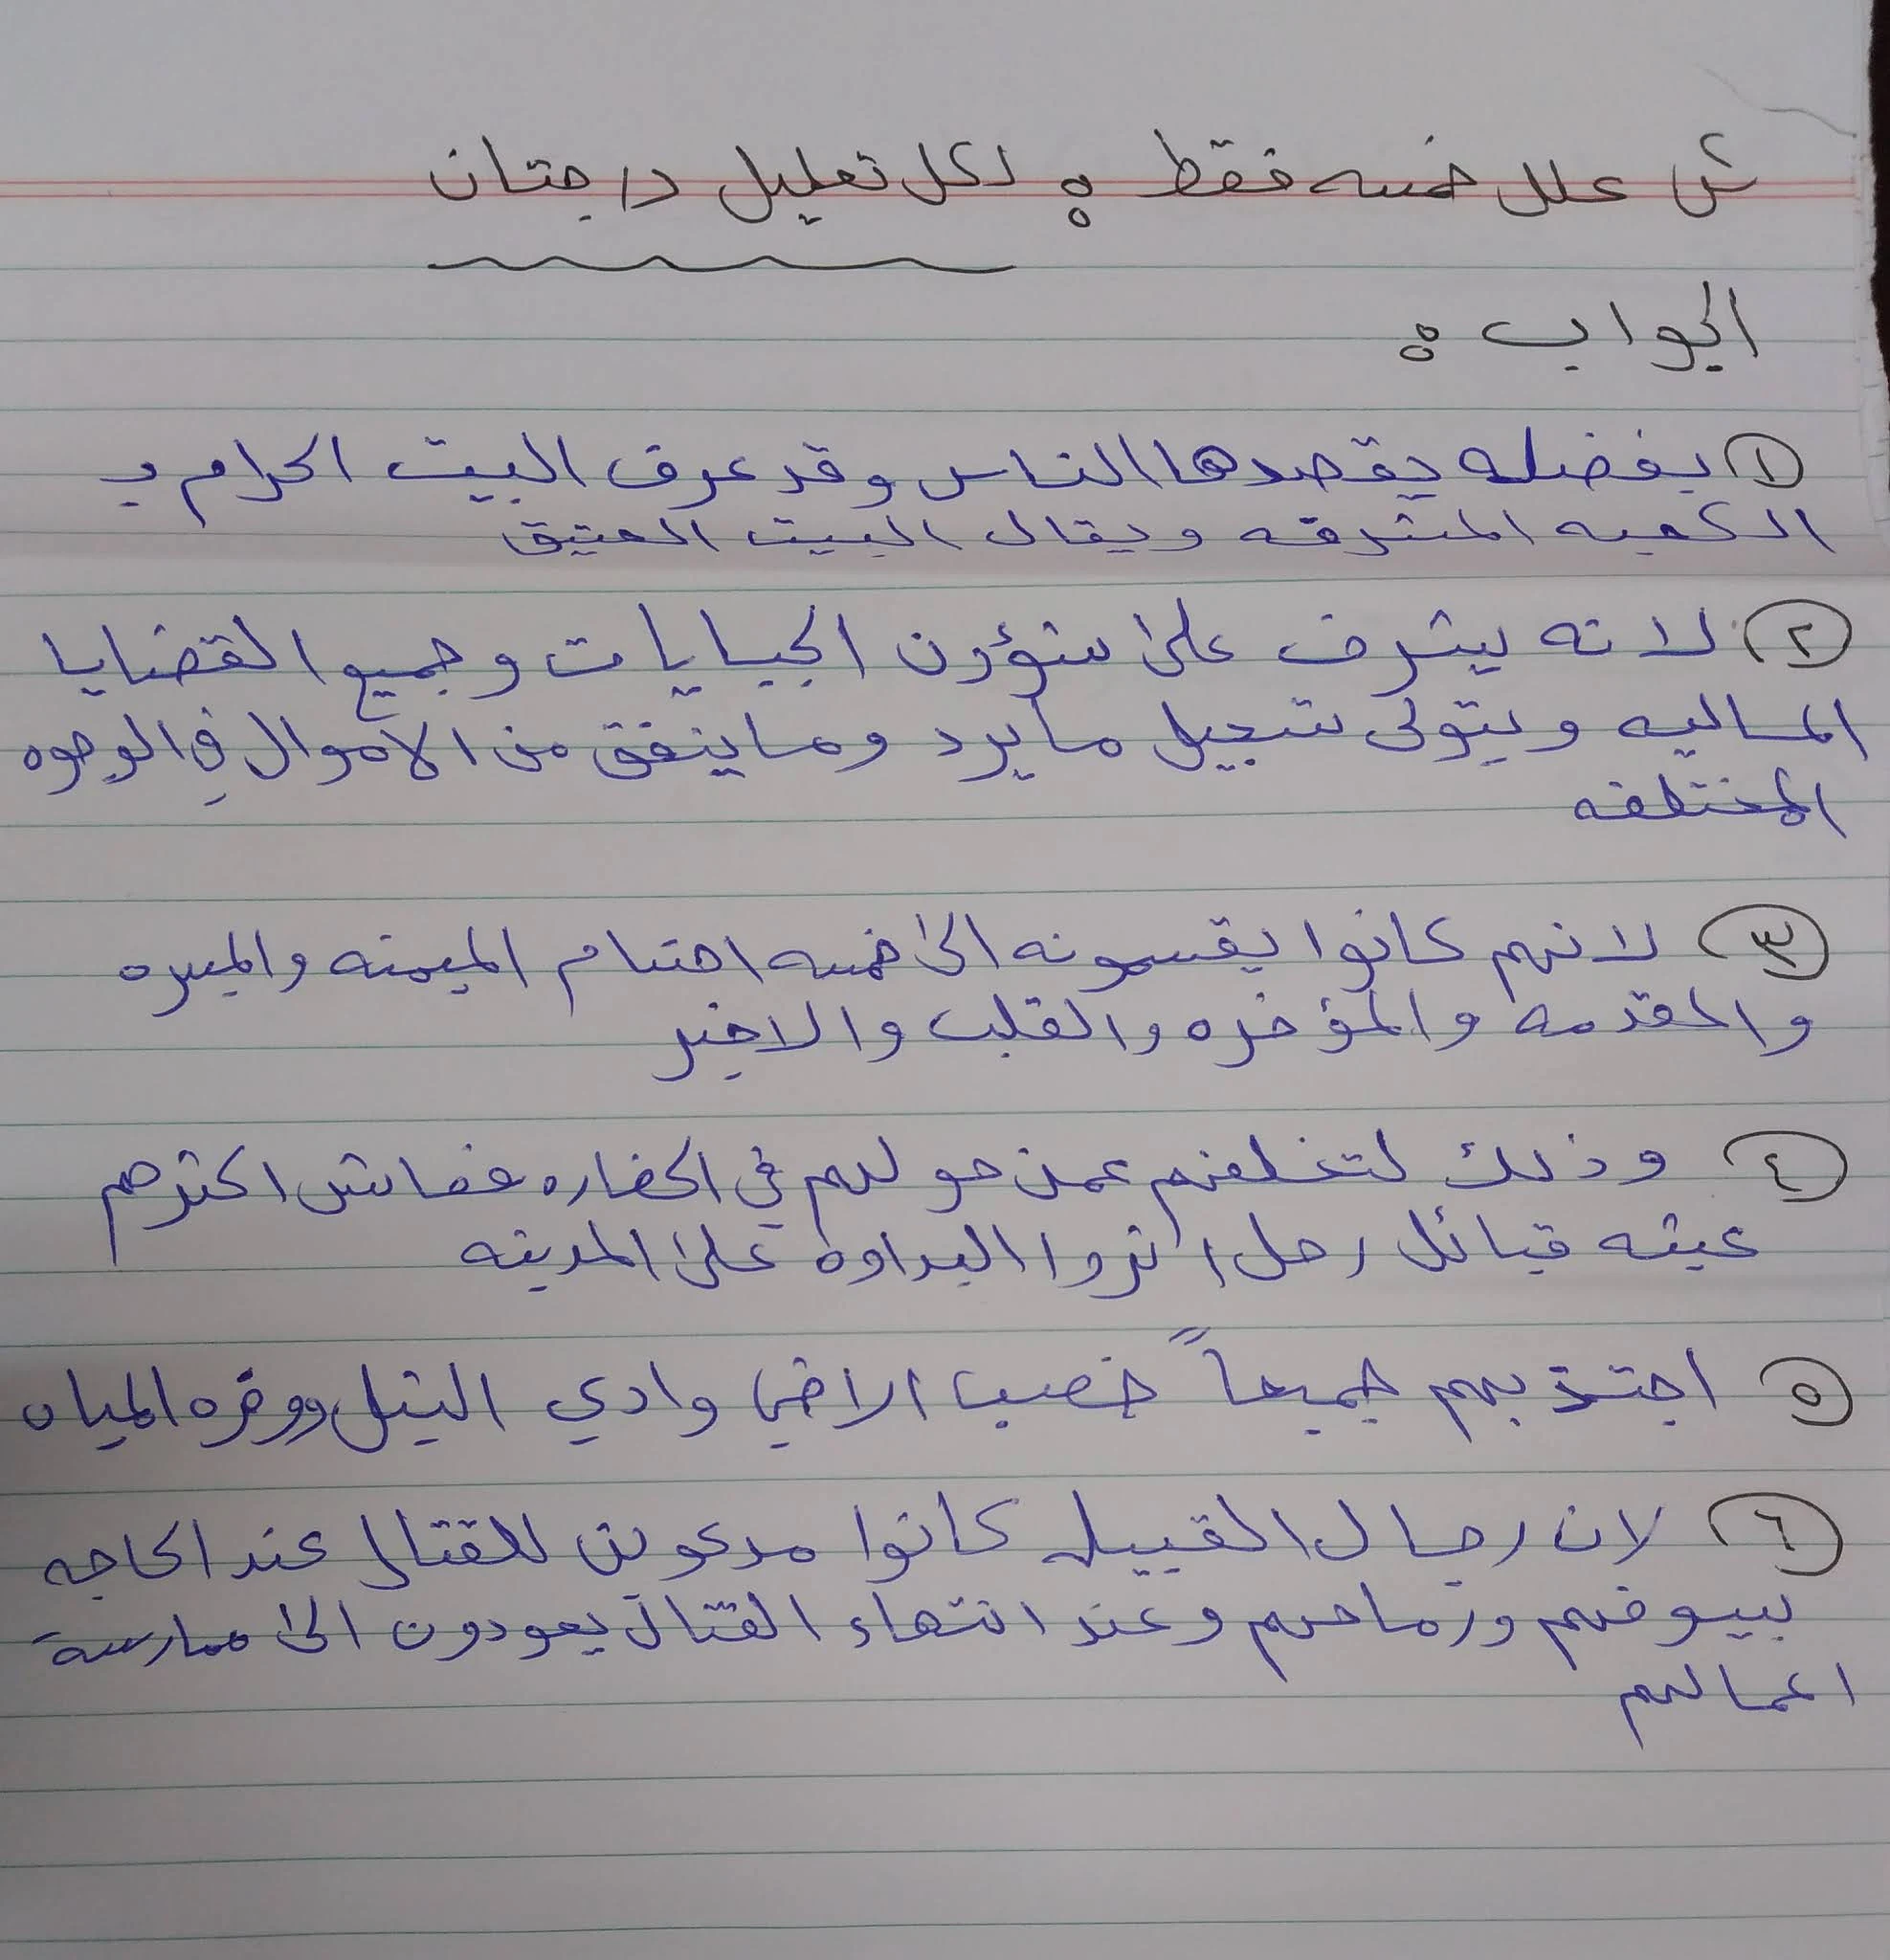 س علل خمسه فقط : لكل تعليل درجتان
الجواب :
١ بفضله يقصدها الناس وقد عرف البيت الحرام بـ
الكعبه المشرفه ويقال البيت العتيق
٢ لانه يشرف على شؤون الجبايات وجميع القضايا
الماليه ويتولى تسجيل مايرد وماينفق من الأموال في الوجوه
المختلفه
٣ لانهم كانوا يقسمونه الى خمسه اقسام الميمنه والميسره
والمقدمه والمؤخره والقلب والاخير
٤ وذلك لتخلفهم عمن حولهم في الحضاره فعاش اكثرهم
عيشه قبائل رحل اثروا البداوه على المدينه
٥ اجتذبهم جميعاً خصب الاراضي وادي النيل ووفره المياه
٦ لان رجال القبيله كانوا مدعوين للقتال عند الحاجه
بسيوفهم ورماحهم وعند انتهاء القتال يعودون الى ممارسة
اعمالهم